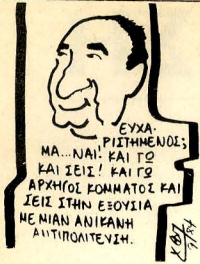 ΕΥΧΑ-
ΡΙΣΤΗΜΕΝΟΣ;
ΜΑ...ΝΑΙ! ΚΑΙ ΓΩ
ΚΑΙ ΣΕΙΣ! ΚΑΙ ΓΩ
ΑΡΧΗΓΟΣ ΚΟΜΜΑΤΟΣ ΚΑΙ
ΣΕΙΣ ΣΤΗΝ ΕΞΟΥΣΙΑ
ΜΕ ΜΙΑΝ ΑΝΙΚΑΝΗ
ΑΝΤΙΠΟΛΙΤΕΥΣΗ.
9/84